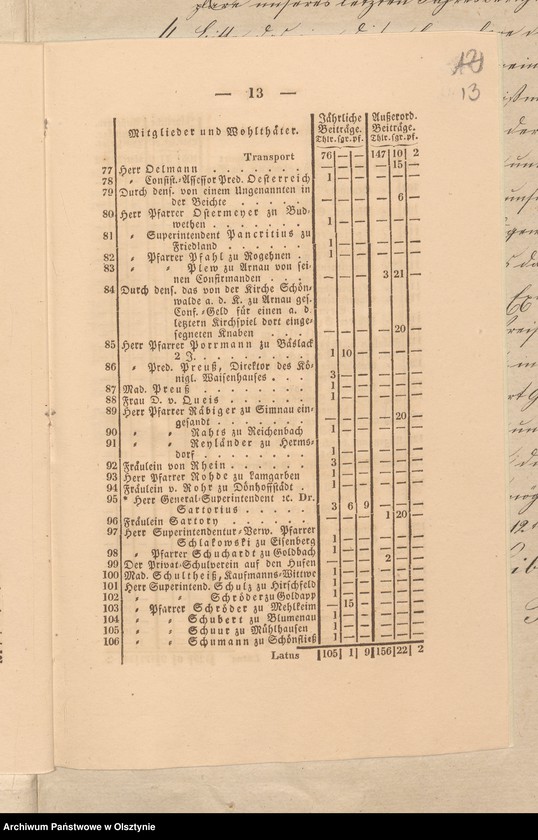 13
— 13 —
Mitglieder und Wohlthäter. Jährliche Beiträge. Thlr. sgr. pf. Außerord. Beiträge. Thlr. sgr. pf.
Transport 76 — — 147 10 2
77 Herr Oelmann . . . . . . . — — — — 15 —
78 „ Consist.-Assessor Pred. Oesterreich 1 — — — — —
79 Durch dens. von einem Ungenannten in
der Beichte . . . . . — — — — 6 —
80 Herr Pfarrer Ostermeyer zu Bud-
wethen . . . . . . . 1 — — — — —
81 „ Superintendent Pancritius zu
Friedland . . . . . . 1 — — — — —
82 „ Pfarrer Pfahl zu Rogehnen . . 1 — — — — —
83 „ „ Plew zu Arnau von sei-
nen Confirmanden . . . — — — 3 21 —
84 Durch dens. das von der Kirche Schön-
walde a. d. K. zu Arnau ges.
Conf.-Geld für einen a. d.
letztern Kirchspiel dort einge-
segneten Knaben . . . — — — — 20 —
85 Herr Pfarrer Porrmann zu Bäslack
2 J. . . . . . . . . 1 10 — — — —
86 „ Pred. Preuß, Direktor des Kö-
nigl. Waisenhauses . . . 3 — — — — —
87 Mad. Preuß . . . . . . . 1 — — — — —
88 Frau D. v. Queis . . . . . . 1 — — — — —
89 Herr Pfarrer Räbiger zu Simnau ein-
gesandt . . . . . . . — — — — 20 —
90 „ „ Rahts zu Reichenbach 1 — — — — —
91 „ „ Reyländer zu Herms-
dorf . . . . . . . . 1 — — — — —
92 Fräulein von Rhein . . . . . . 3 — — — — —
93 Herr Pfarrer Rohde zu Lamgarben 1 — — — — —
94 Fräulein v. Rohr zu Dönhoffstädt . 1 — — — — —
95 * Herr General-Superintendent ꝛc. Dr.
Sartorius . . . . . . 3 6 9 — — —
96 Fräulein Sartory . . . . . — — — 1 20 —
97 Herr Superintendentur-Verw. Pfarrer
Schlakowski zu Eisenberg 1 — — — — —
98 „ Pfarrer Schuchardt zu Goldbach 1 — — — — —
99 Der Privat-Schulverein auf den Hufen — — — 2 — —
100 Mad. Schultheiß, Kaufmanns-Wittwe 1 — — — — —
101 Herr Superintend. Schulz zu Hirschfeld 1 — — — — —
102 „ „ Schröder zu Goldapp 1 — — — — —
103 „ Pfarrer Schröder zu Mehlkeim — 15 — — — —
104 „ „ Schubert zu Blumenau 1 — — — — —
105 „ „ Schuur zu Mühlhausen 1 — — — — —
106 „ „ Schumann zu Schönfließ 1 — — — — —
Latus 105 1 9 156 22 2
Archiwum Państwowe w Olsztynie